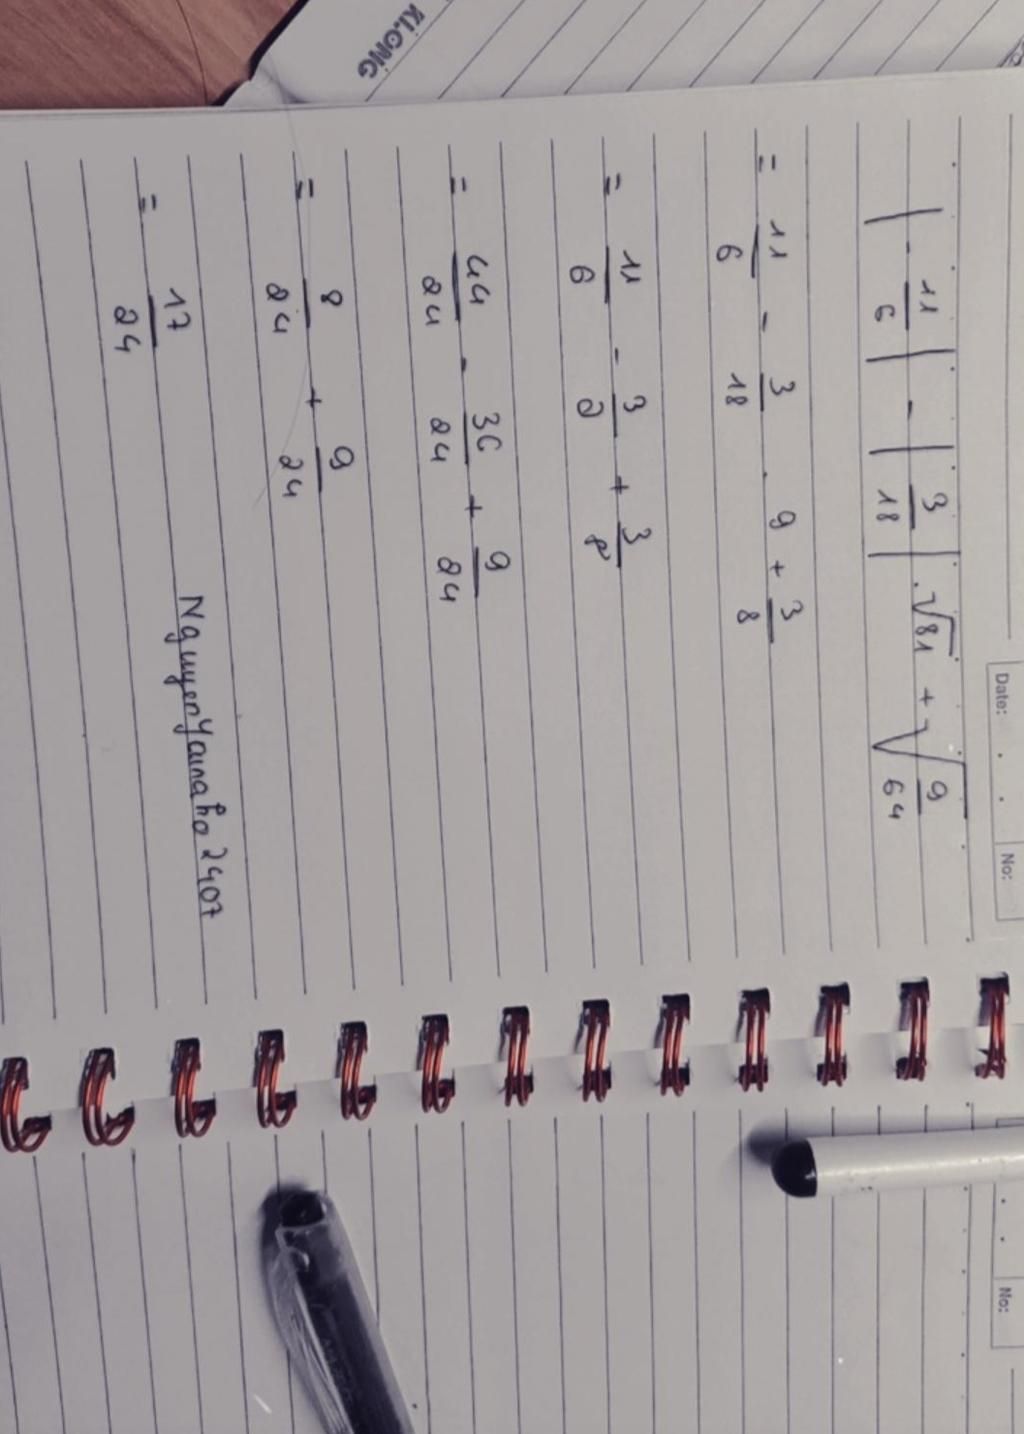 KLONG
Date: . . No:
|- 11/6| - |3/18| . √81 + √(9/64)
= 11/6 - 3/18 . 9 + 3/8
= 11/6 - 3/2 + 3/8
= 44/24 - 36/24 + 9/24
= 8/24 + 9/24
= 17/24
NguyenYaunaho2407
No: